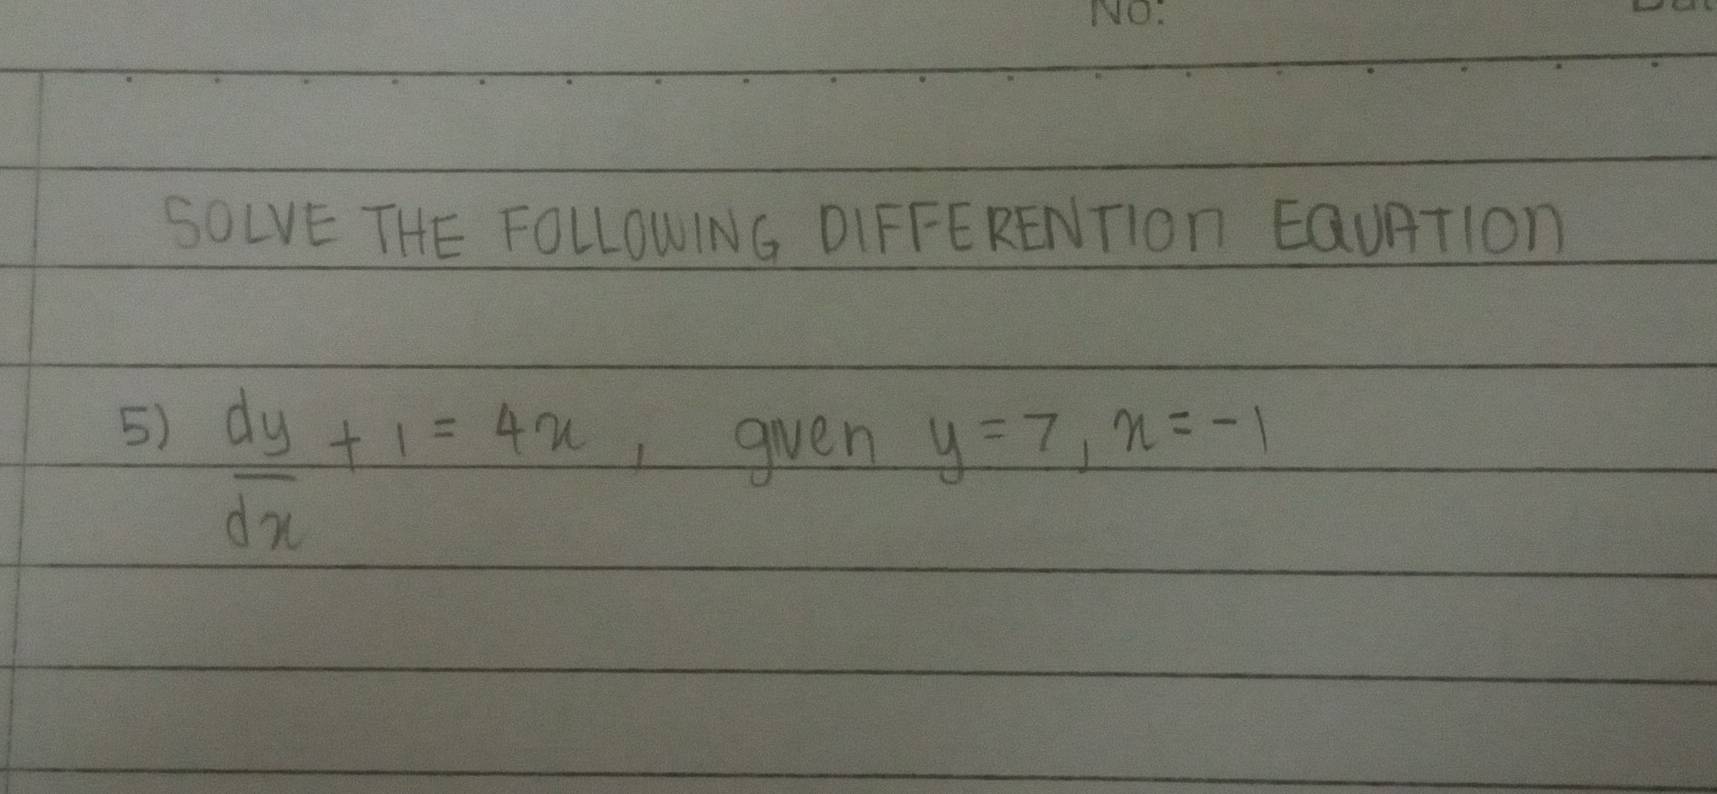 No:
SOLVE THE FOLLOWING DIFFERENTION EQUATION
5) dy/dx + 1 = 4x, given y = 7, x = -1